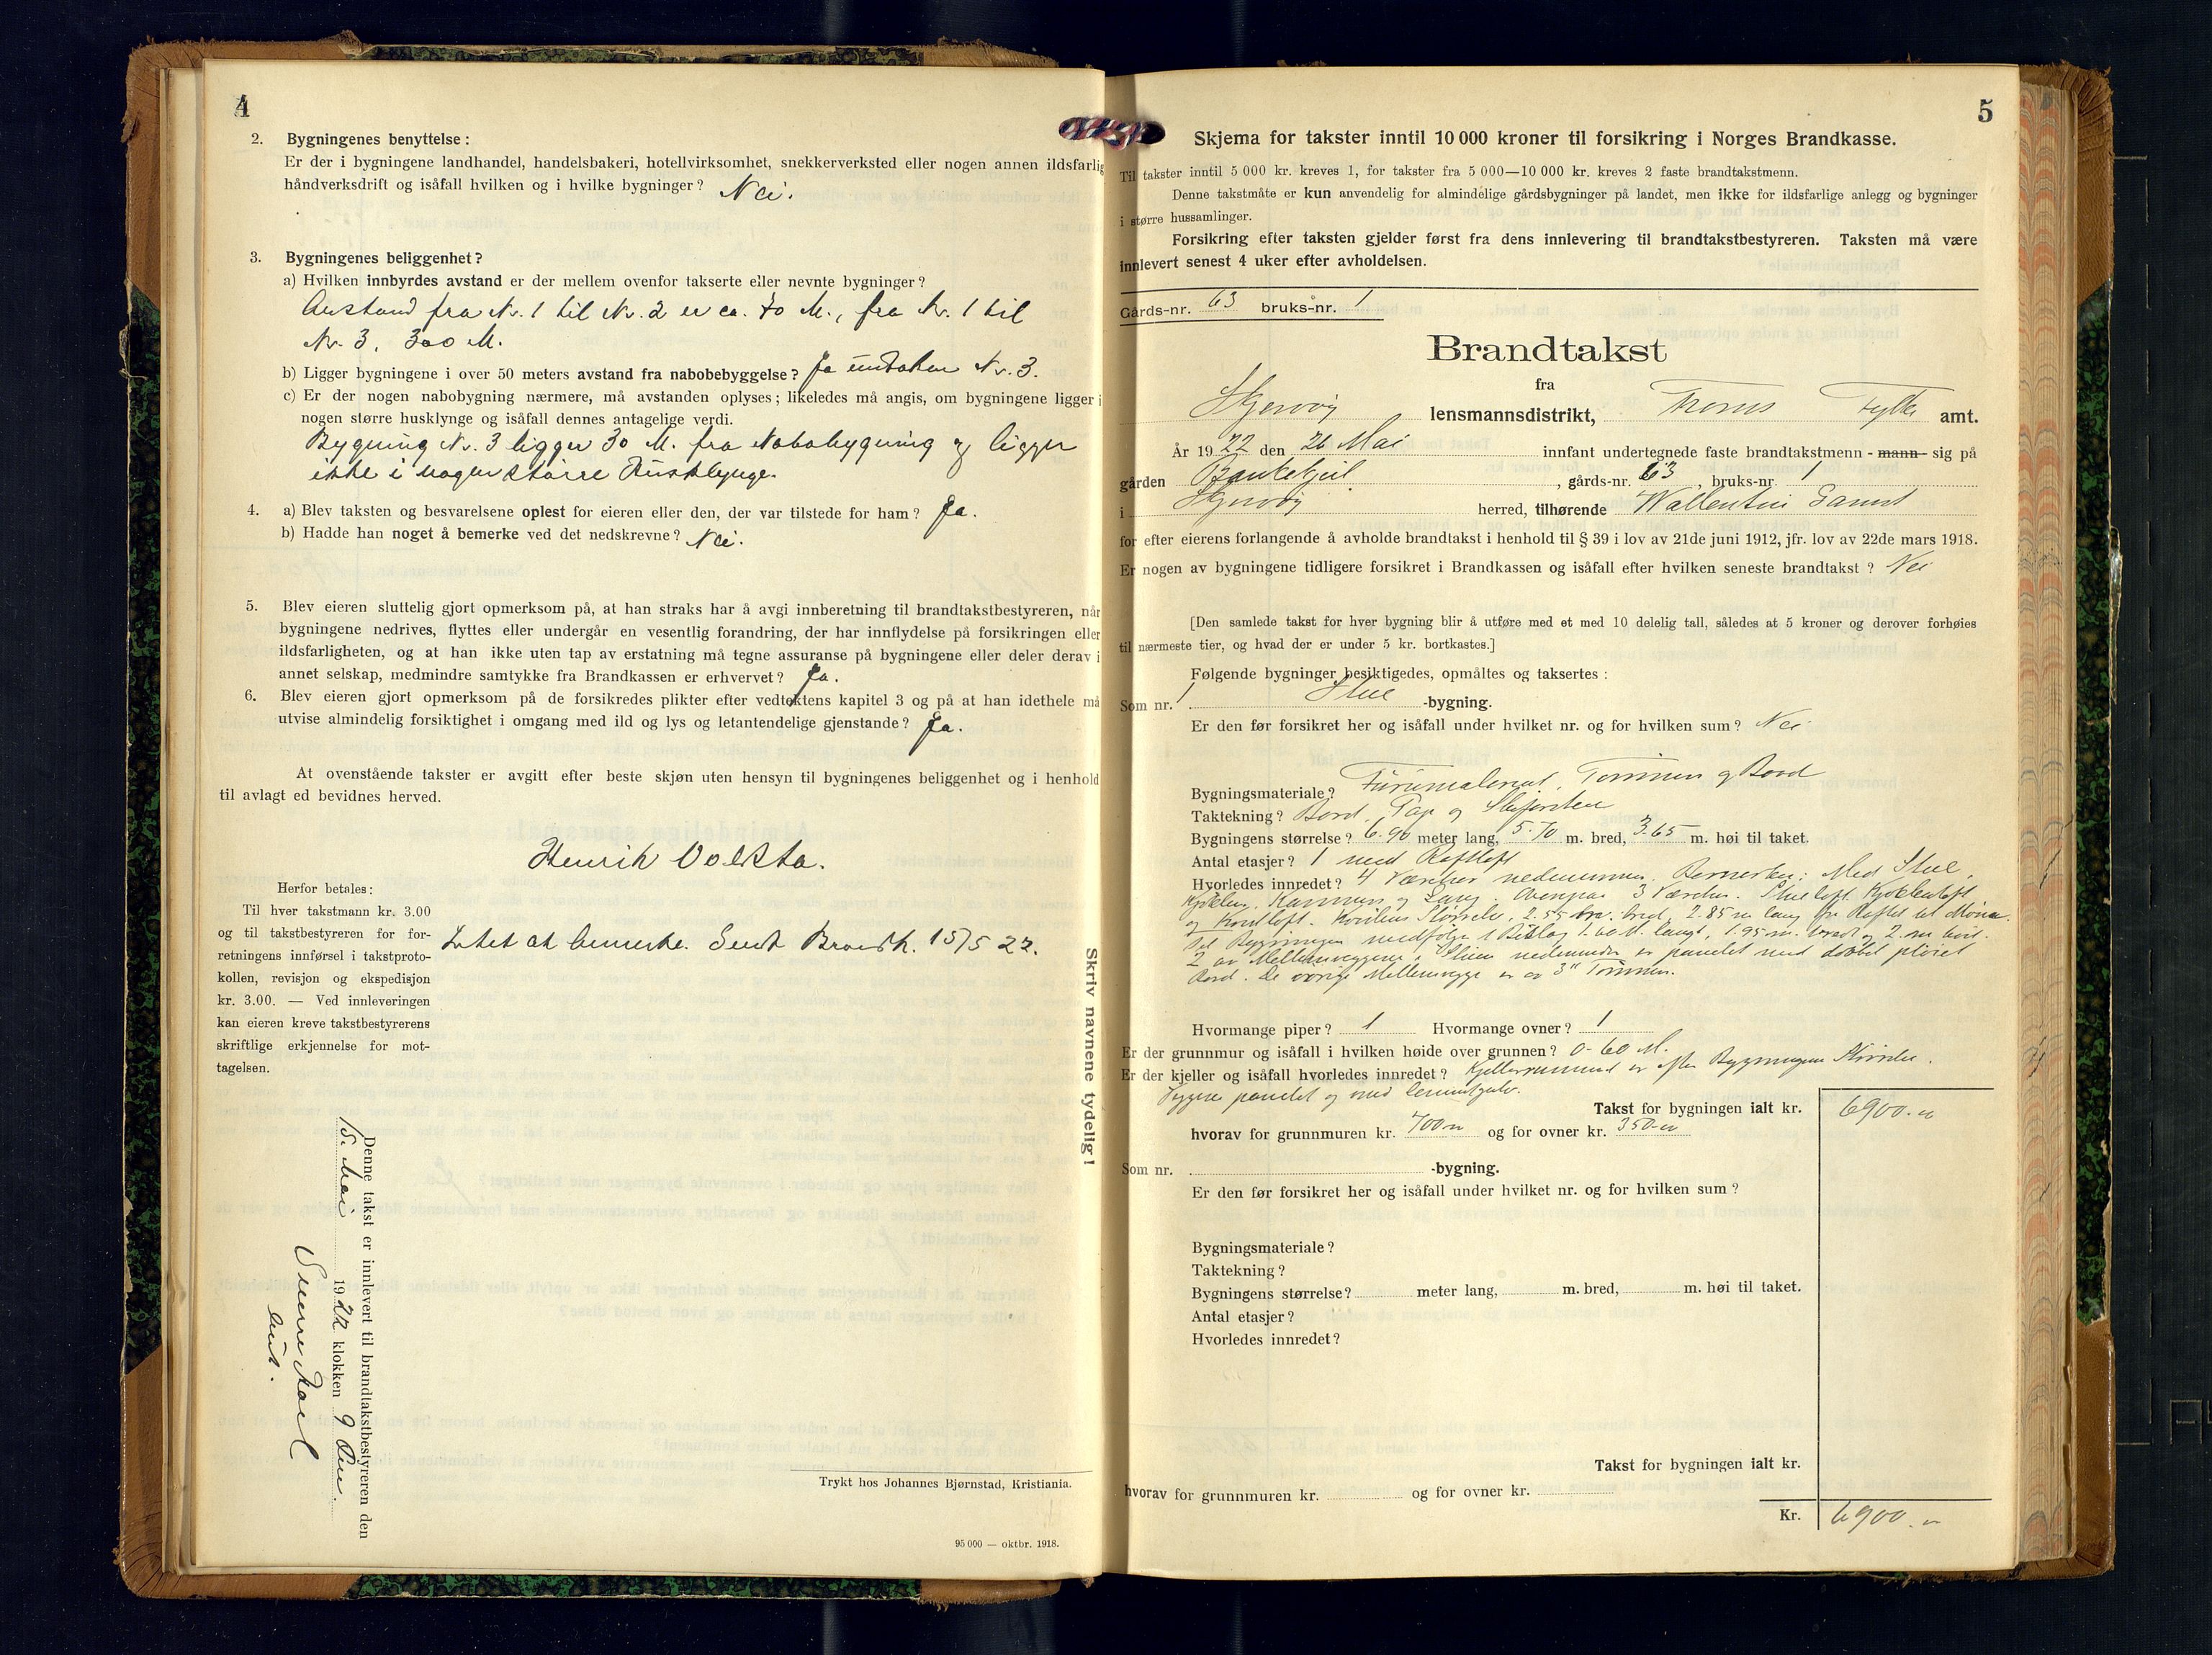 4
2. Bygningenes benyttelse:
Er der i bygningene landhandel, handelsbakeri, hotellvirksomhet, snekkerverksted eller nogen annen ildsfarlig
håndverksdrift og isåfall hvilken og i hvilke bygninger? Nei.
3. Bygningenes beliggenhet?
a) Hvilken innbyrdes avstand er der mellem ovenfor takserte eller nevnte bygninger?
Avstand fra Nr. 1 til Nr. 2 er ca. 70 M., fra Nr. 1 til
Nr. 3, 300 M.
b) Ligger bygningene i over 50 meters avstand fra nabobebyggelse? Ja undtaken Nr. 3.
c) Er der nogen nabobygning nærmere, må avstanden oplyses; likeledes må angis, om bygningene ligger i
nogen større husklynge og isåfall dennes antagelige verdi.
Bygning Nr. 3 ligger 30 M. fra Nabobygning og ligger
ikke i nogen større Husklynge.
4. a) Blev taksten og besvarelsene oplest for eieren eller den, der var tilstede for ham? Ja.
b) Hadde han noget å bemerke ved det nedskrevne? Nei.
5. Blev eieren sluttelig gjort opmerksom på, at han straks har å avgi innberetning til brandtakstbestyreren, når
bygningene nedrives, flyttes eller undergår en vesentlig forandring, der har innflydelse på forsikringen eller
ildsfarligheten, og at han ikke uten tap av erstatning må tegne assuranse på bygningene eller deler derav i
annet selskap, medmindre samtykke fra Brandkassen er erhvervet? Ja.
6. Blev eieren gjort opmerksom på de forsikredes plikter efter vedtektens kapitel 3 og på at han idethele må
utvise almindelig forsiktighet i omgang med ild og lys og letantendelige gjenstande? Ja.
At ovenstående takster er avgitt efter beste skjøn uten hensyn til bygningenes beliggenhet og i henhold
til avlagt ed bevidnes herved.
Henrik Volsta.
Herfor betales:
Til hver takstmann kr. 3.00
og til takstbestyreren for for-
retningens innførsel i takstproto-
kollen, revisjon og ekspedisjon
kr. 3.00. — Ved innleveringen
kan eieren kreve takstbestyrerens
skriftlige erkjennelse for mot-
tagelsen.
Intet at bemerke. Sendt Brandk. 15/5 22.
Skriv navnene tydelig!
Denne takst er innlevert til brandtakstbestyreren den
15. Mai 1922 klokken 9 Em.
Trykt hos Johannes Bjørnstad, Kristiania.
95 000 — oktbr. 1918.
5
Skjema for takster inntil 10 000 kroner til forsikring i Norges Brandkasse.
Til takster inntil 5 000 kr. kreves 1, for takster fra 5 000—10 000 kr. kreves 2 faste brandtakstmenn.
Denne takstmåte er kun anvendelig for almindelige gårdsbygninger på landet, men ikke for ildsfarlige anlegg og bygninger
i større hussamlinger.
Forsikring efter taksten gjelder først fra dens innlevering til brandtakstbestyreren. Taksten må være
innlevert senest 4 uker efter avholdelsen.
Gårds-nr. 63 bruks-nr. 1
Brandtakst
fra
Skjervøy lensmannsdistrikt, Troms Fylke amt.
År 1922 den 26 Mai innfant undertegnede faste brandtakstmenn - mann - sig på
gården Bankekeil, gårds-nr. 63, bruks-nr. 1
i Skjervøy herred, tilhørende Wallentin
for efter eierens forlangende å avholde brandtakst i henhold til § 39 i lov av 21de juni 1912, jfr. lov av 22de mars 1918.
Er nogen av bygningene tidligere forsikret i Brandkassen og isåfall efter hvilken seneste brandtakst? Nei
[Den samlede takst for hver bygning blir å utføre med et med 10 delelig tall, således at 5 kroner og derover forhøies
til nærmeste tier, og hvad der er under 5 kr. bortkastes.]
Følgende bygninger besiktigedes, opmåltes og taksertes:
Som nr. 1 Stue -bygning.
Er den før forsikret her og isåfall under hvilket nr. og for hvilken sum? Nei
Bygningsmateriale? Furumaterial, Tømmer og Bord
Taktekning? Bord, Pap og Skifersten
Bygningens størrelse? 6.90 meter lang, 5.70 m. bred, 3.65 m. høi til taket.
Antal etasjer? 1 med Røftloft
Hvorledes innredet? 4 Værelser nedenunder. Bemerker: Med Stue,
Kjøkken, Kammers og Gang. Ovenpaa 3 Værelser. Stueloft Kjøkkenloft
og Kvistloft. Kvistens Størrelse, 2.55 m. bred, 2.85 m lang fra Røftet til Møne.
Til Bygningen medfølger 1 Bislag 1.60 M. langt, 1.95 m. bredt og 2. m høit.
2 av Mellemveggene i Stuen nedenunder er panelet med dobbel pløiet
Bord. De øvrige Mellemvegge er av 3" Tømmer.
Hvormange piper? 1 Hvormange ovner? 1
Er der grunnmur og isåfall i hvilken høide over grunnen? 0-60 M.
Er der kjeller og isåfall hvorledes innredet? Kjellerrummet er efter Bygningens Størrelse.
Veggene panelet og med Cementgulv.
Takst for bygningen ialt kr. 6900.-
hvorav for grunnmuren kr. 700 og for ovner kr. 350-
Som nr. -bygning.
Er den før forsikret her og isåfall under hvilket nr. og for hvilken sum?
Bygningsmateriale?
Taktekning?
Bygningens størrelse? meter lang, m. bred, m. høi til taket.
Antal etasjer?
Hvorledes innredet?
Takst for bygningen ialt kr.
hvorav for grunnmuren kr. og for ovner kr.
Kr. 6900.-